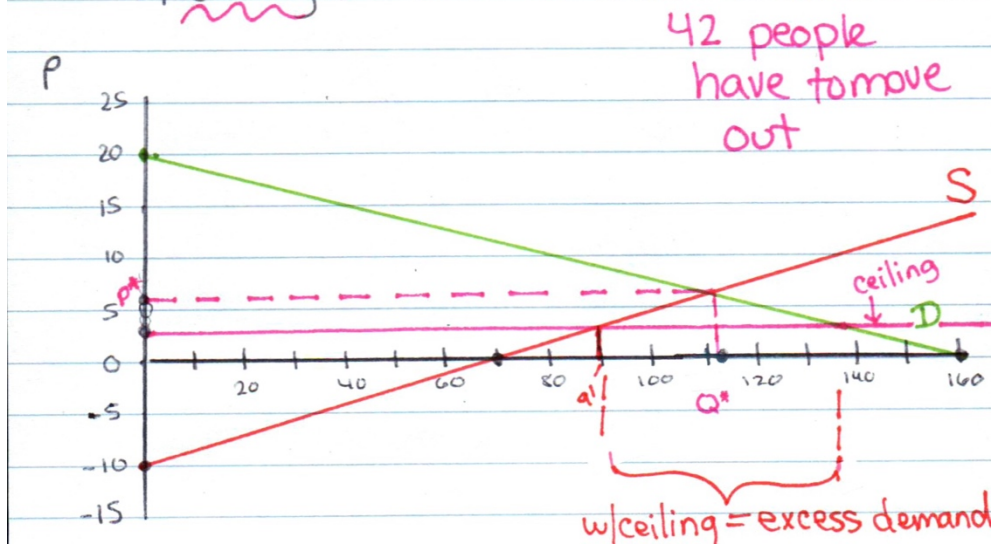 42 people
have to move
out
P
25
20
15
10
P*
5
0
-5
-10
-15
S
ceiling
D
20
40
60
80
100
120
140
160
q'
Q*
w/ceiling = excess demand